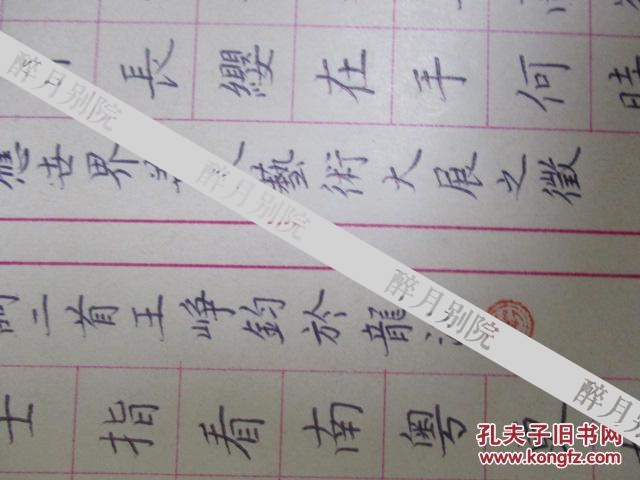 長纓在手何時
應世界華人藝術大展之徵
二首王崢鈞於龍
士指看南粵
醉月别院
醉月别院
醉月别院
醉月别院
醉月别院
孔夫子旧书网
www.kongfz.com